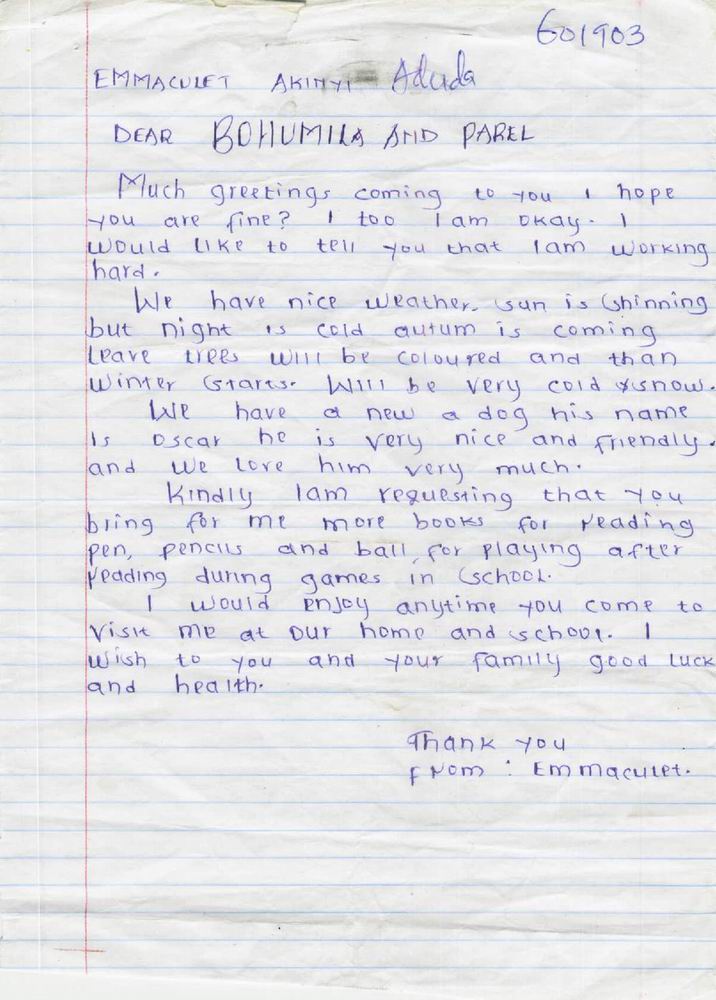 601903
EMMACULET AKINYI Aduda
DEAR BOHUMILA AND PAREL
Much greetings coming to you I hope
you are fine? I too I am okay. I
would like to tell you that I am working
hard.
We have nice weather. sun is shinning
but night is cold autum is coming
leave trees will be coloured and than
winter starts. Will be very cold &snow.
We have a new a dog his name
is oscar he is very nice and friendly.
and we love him very much.
Kindly I am requesting that you
bring for me more books for reading
pen, pencils and ball, for playing after
reading during games in school.
I would enjoy anytime you come to
visit me at our home and school. I
wish to you and your family good luck
and health.
Thank you
from : Emmaculet.